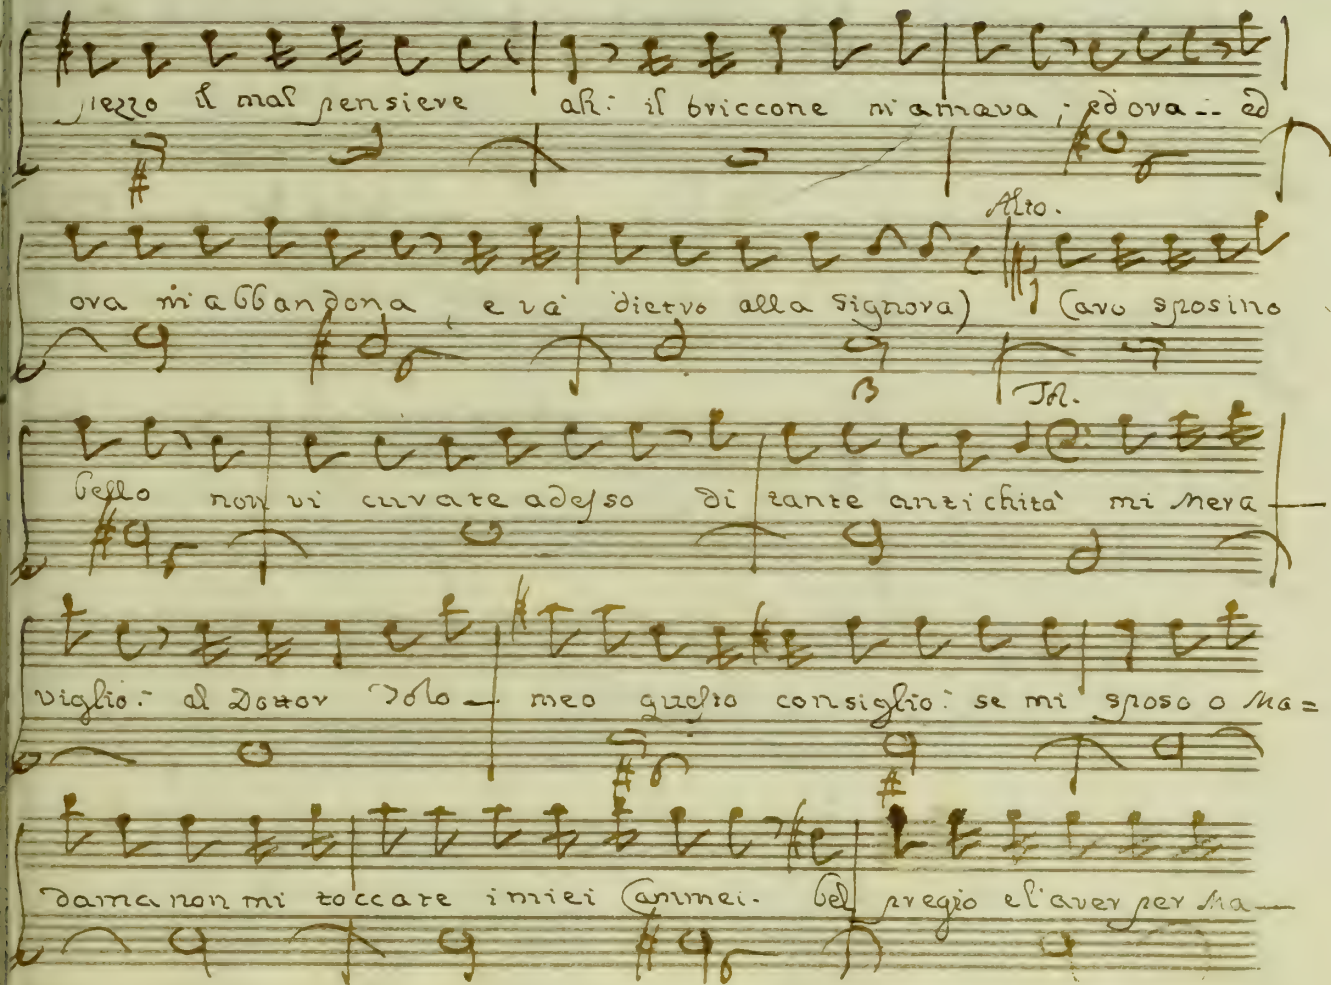 pezzo il mal pensiere ah: il briccone m'amava; ed ora -- ed
Alto.
ora m'abbandona, e va' dietro alla Signora) Caro sposino
Tol.
bello non vi curate adesso di tante antichità mi mera-
viglio: al Dottor Tolo- meo questo consiglio: se mi sposo o Ma=
dama non mi toccate i miei Cammei. bel pregio e l'aver per Ma-